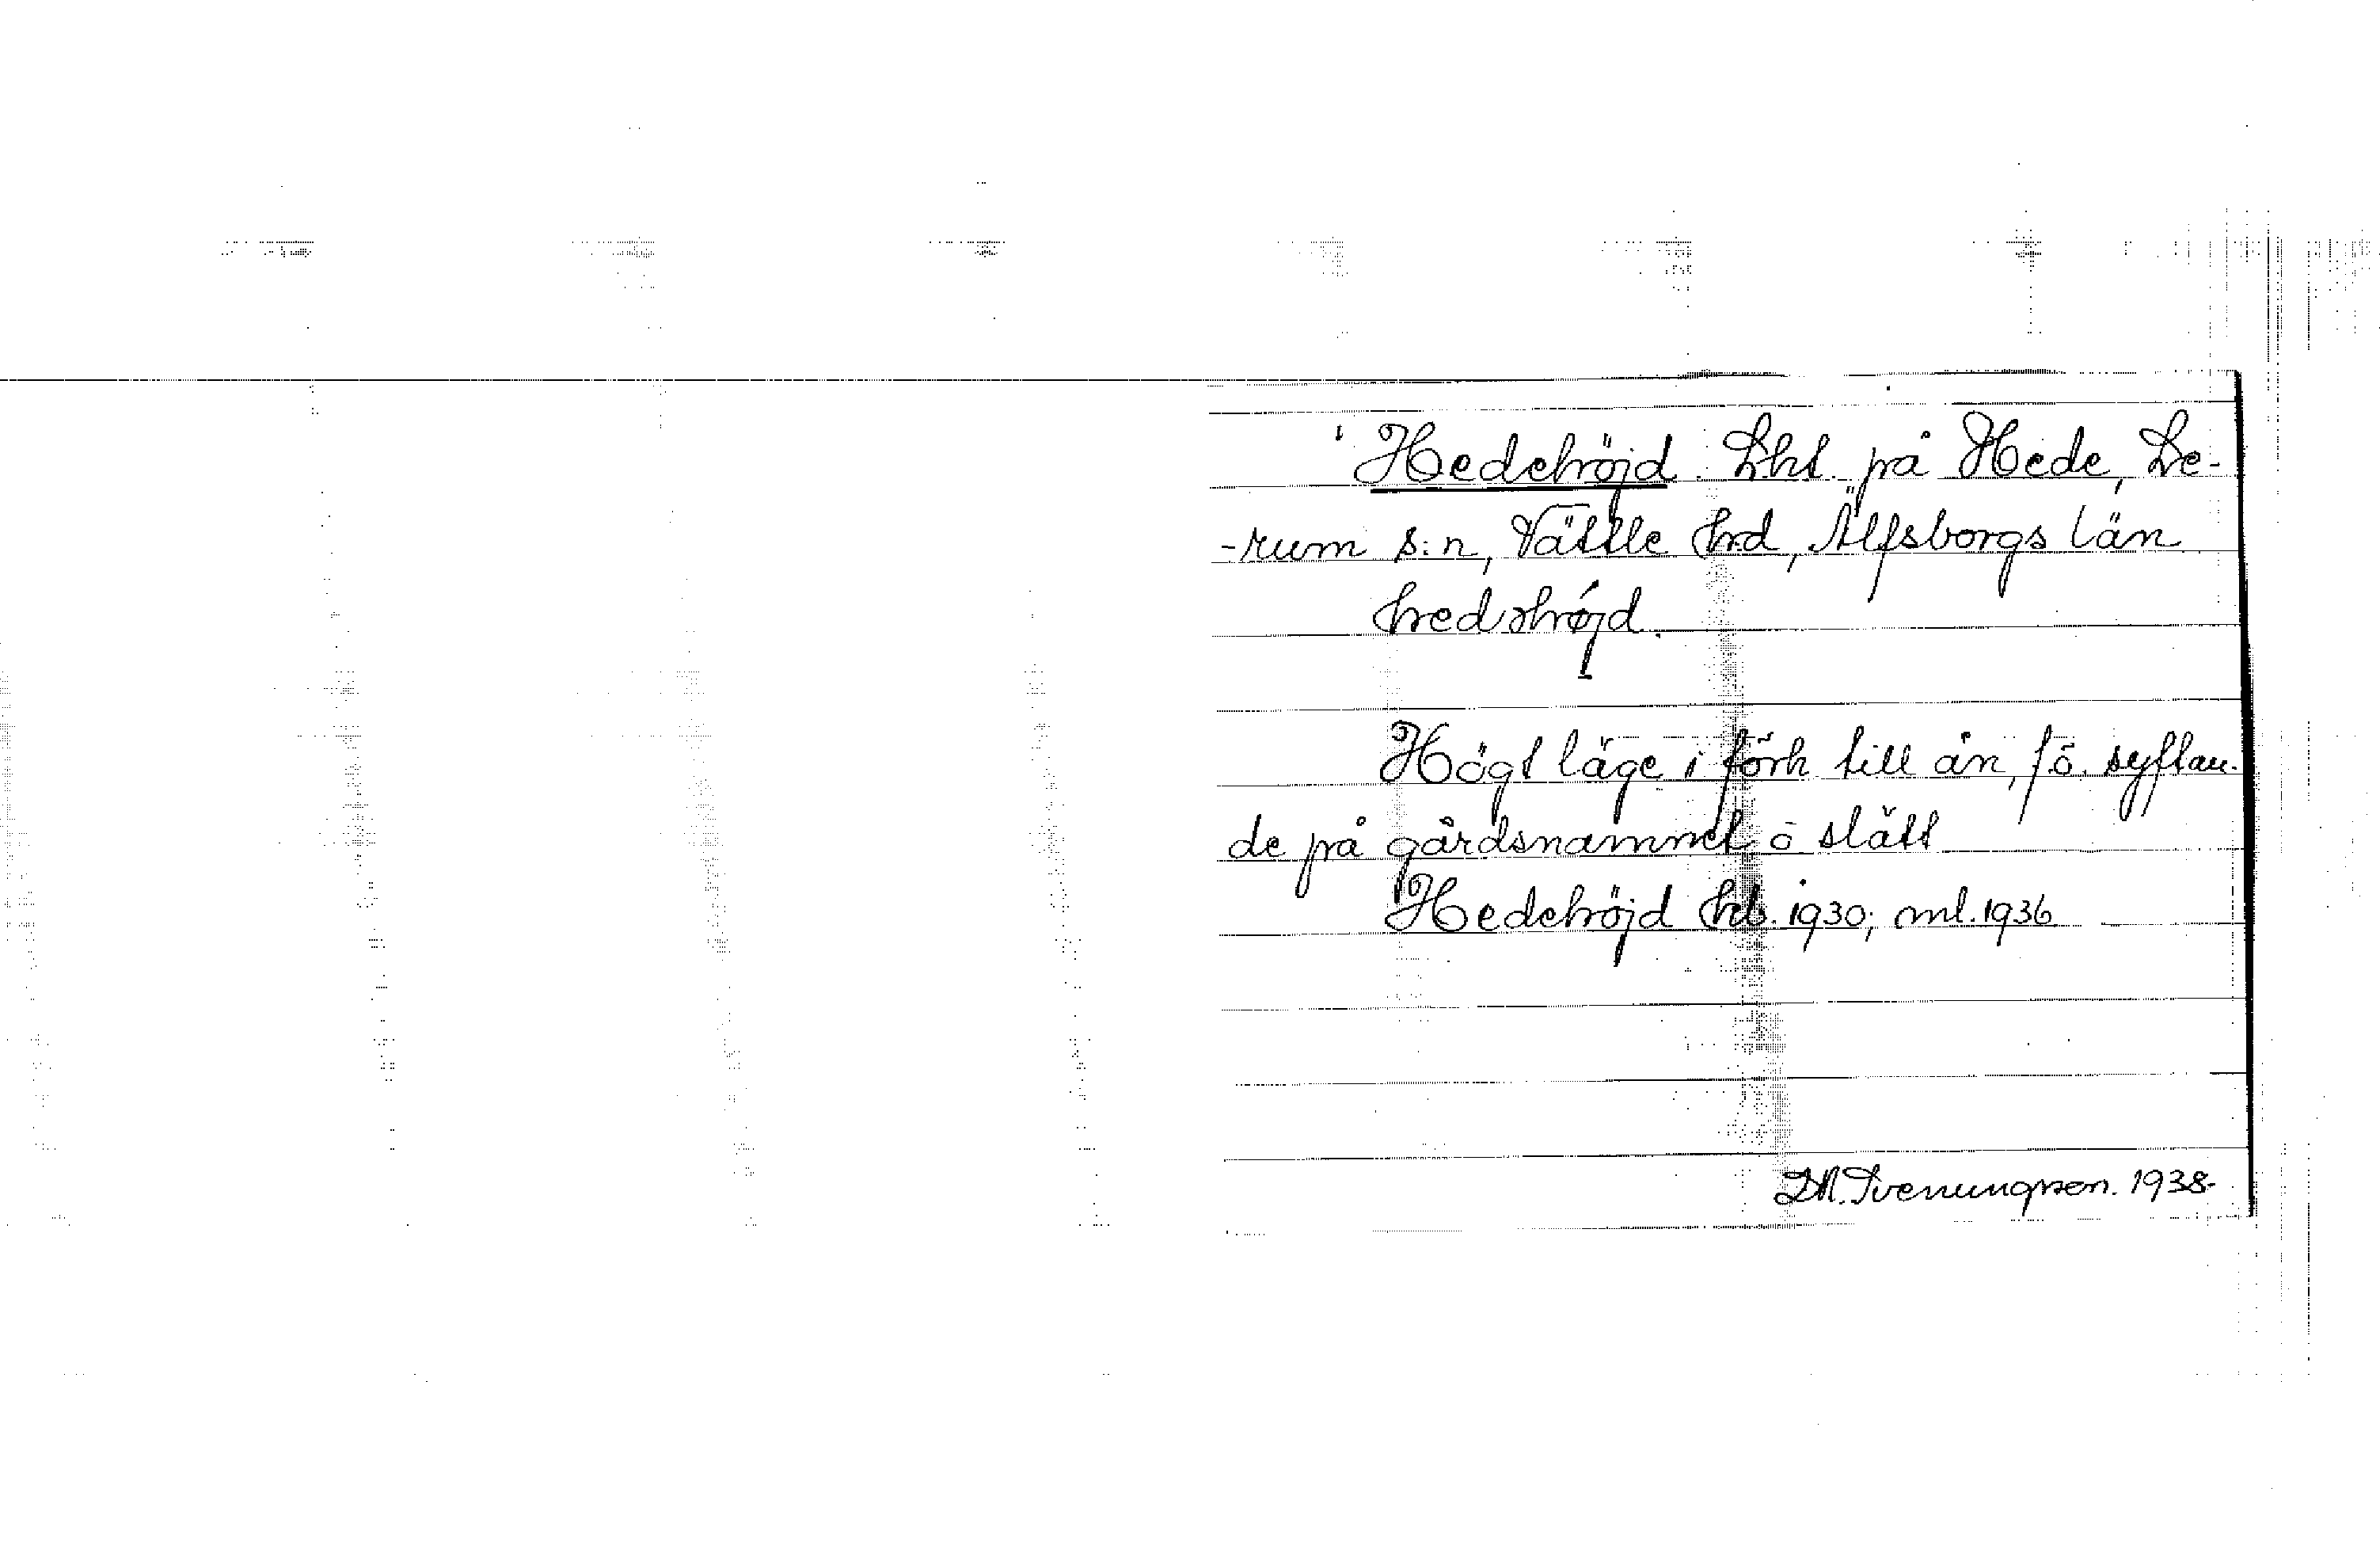 Hedehöjd. Lht. på Hede, Le-
-rum s:n, Vättle hrd, Älfsborgs län
Högt läge i förh till ån, f.ö. syftan-
de på gårdsnamnet o slätt
Hedehöjd hb. 1930; ml. 1936
1938